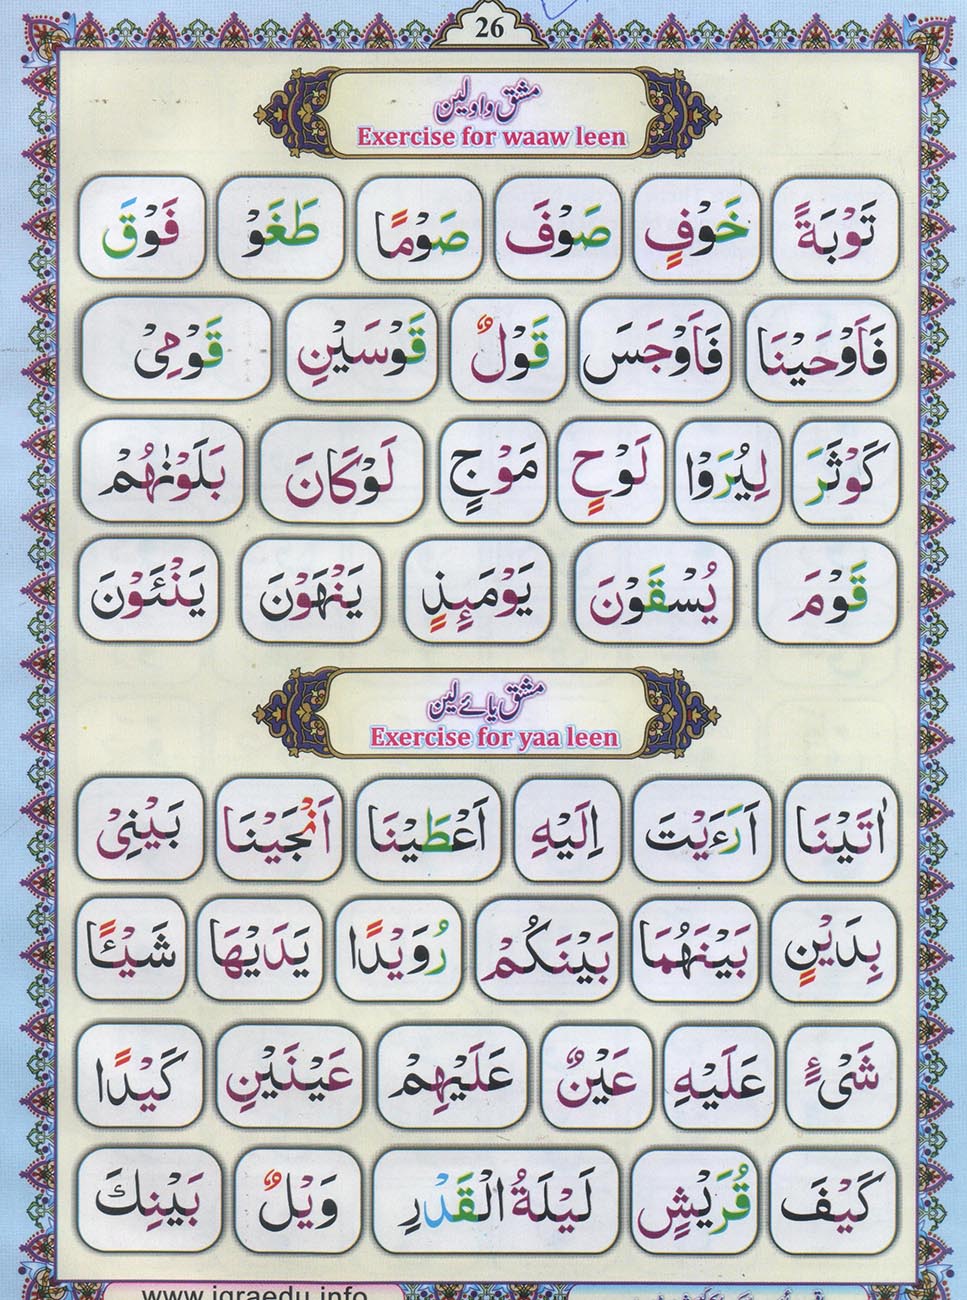 26
مشق واو لین
Exercise for waaw leen
تَوْبَةً خَوْفٍ صَوْفَ صَوْمًا طَغَوْ فَوْقَ
فَاَوْحَيْنَا فَاَوْجَسَ قَوْلٌ قَوْسَيْنِ قَوْمِيْ
كَوْثَرَ لِيُرَوْا لَوْحٍ مَوْجٍ لَوْكَانَ بَلَوْنٰهُمْ
قَوْمَ يُسْقَوْنَ يَوْمَئِذٍ يَنْهَوْنَ يَنْئَوْنَ
مشق یائے لین
Exercise for yaa leen
اٰتَيْنَا اَرَءَيْتَ اِلَيْهِ اَعْطَيْنَا اَنْجَيْنَا بَيْنِيْ
بِدَيْنٍ بَيْنَهُمَا بَيْنَكُمْ رُوَيْدًا يَدَيْهَا شَيْئًا
شَيْءٍ عَلَيْهِ عَيْنٌ عَلَيْهِمْ عَيْنَيْنِ كَيْدًا
كَيْفَ قُرَيْشٍ لَيْلَةُ الْقَدْرِ وَيْلٌ بَيْنِكَ
www.iqraedu.info